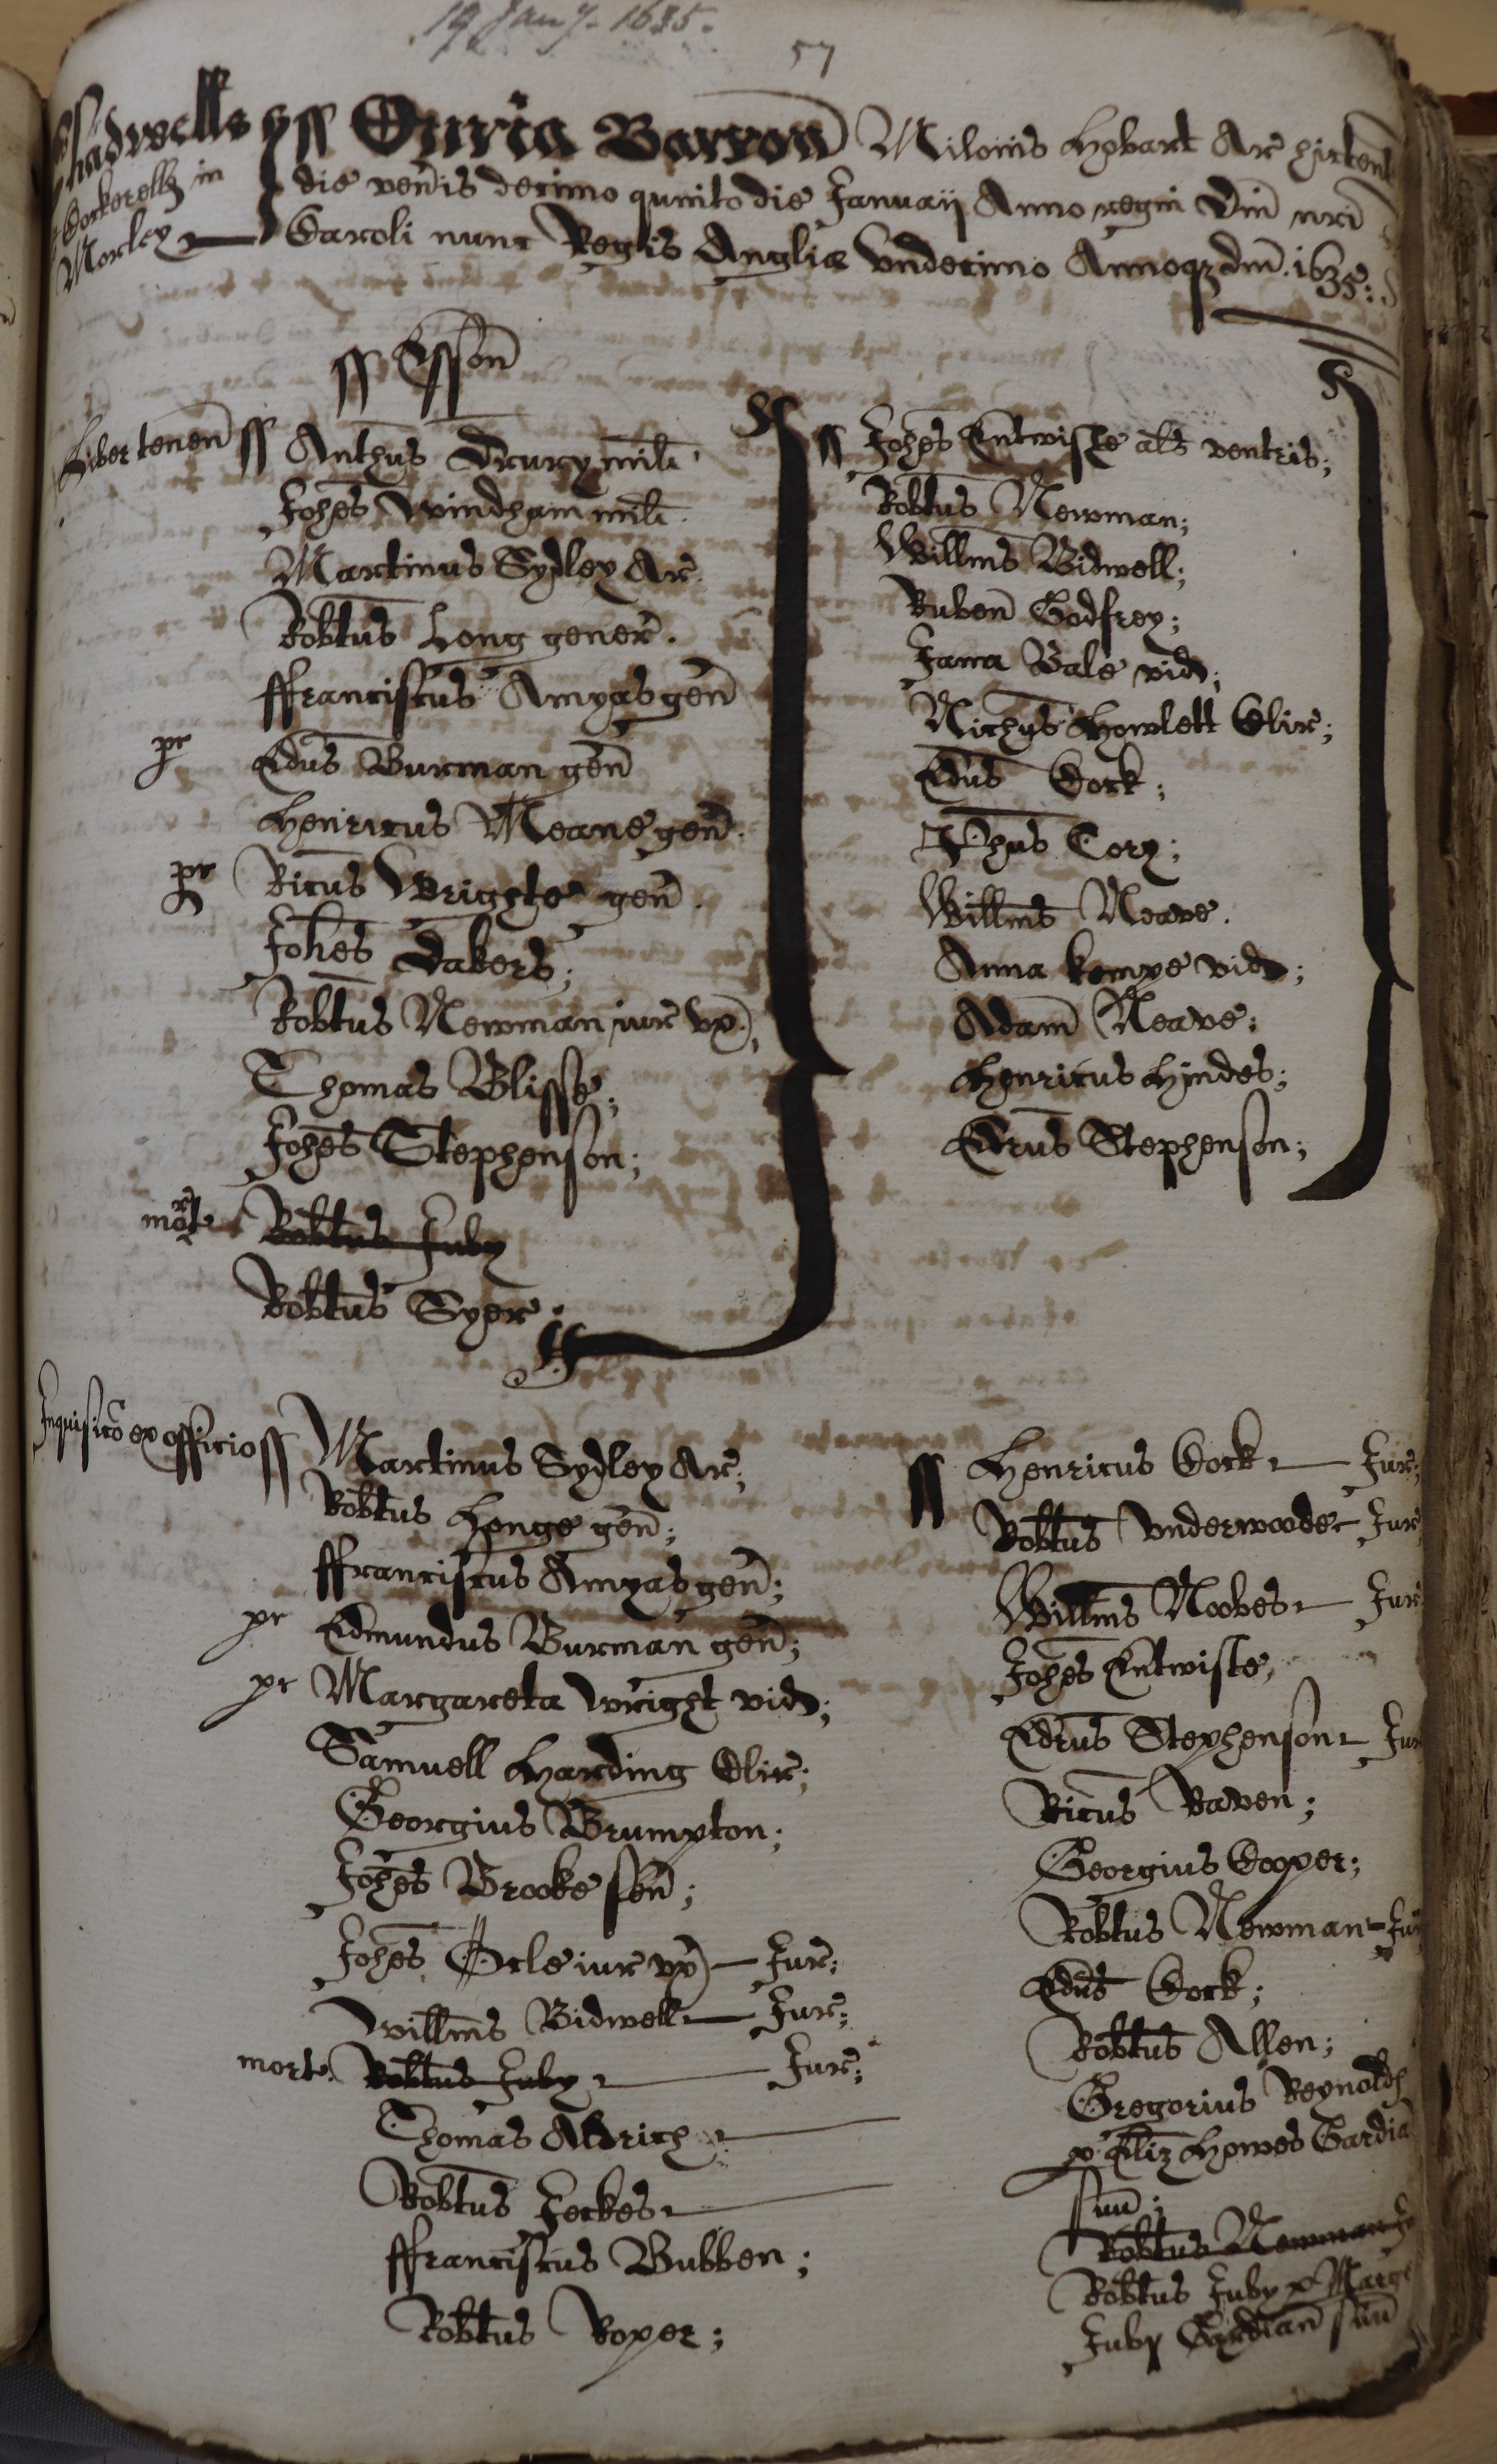 19 Jany. 1635.
57
Shadwells
Cockerells in
Morley
ss Curia Barron Milonis Hobart Ar ibidem tent
die venis decimo quinto die Januarij Anno regni Dni nri
Caroli nunc Regis Angliæ Undecimo Annoqz dni. 1635:
ss Esson
Liber tenen ss Anthus Drury mili
Johes Windham mili.
Martinus Sydley Ar.
Robtus Long gener.
ffranciscus Amyas gen
pr Edus Burman gen
Henricus Meane gen.
pr Ricus Wrighte gen.
Johes Dakers;
Robtus Newman iure ux;
Thomas Blisse;
Johes Stephenson;
mort Robtus Juby
Robtus Syer.
ss Johes Entwistle als ventris;
Robtus Newman;
Willms Bidwell;
Ruben Godfrey;
Jana Bale vid;
Nichus Howlett Clic;
Edus Cock;
Cory;
Willms Neave.
Anna Kempe vid;
Adam Neave;
Henricus Hindes;
Edrus Stephenson;
Inquisico ex officio ss Martinus Sydley Ar;
Robtus Longe gen;
ffranciscus Amyas gen;
pr Edmundus Burman gen;
pr Margareta Wright vid;
Samuell Harding Clic;
Georgius Brumpton;
Johes Brooke sen;
Johes Ocle iure ux — Jur;
Willms Bidwell — Jur;
mort. Robtus Juby — Jur;
Thomas Aldrich
Robtus Jeckes
ffranciscus Bubben;
Robtus Roper;
ss Henricus Cock — Jur;
Robtus Underwoode — Jur
Willms Nobbes — Jur
Johes Entwistle,
Edrus Stephenson — Jur
Ricus Raven;
Georgius Cooper;
Robtus Newman — Jur
Edus Cock;
Robtus Allen;
Gregorius Reynolds
p Eliz Howes Gardia
suu;
Robtus Newman
Robtus Juby p Marg
Juby Gardian suu